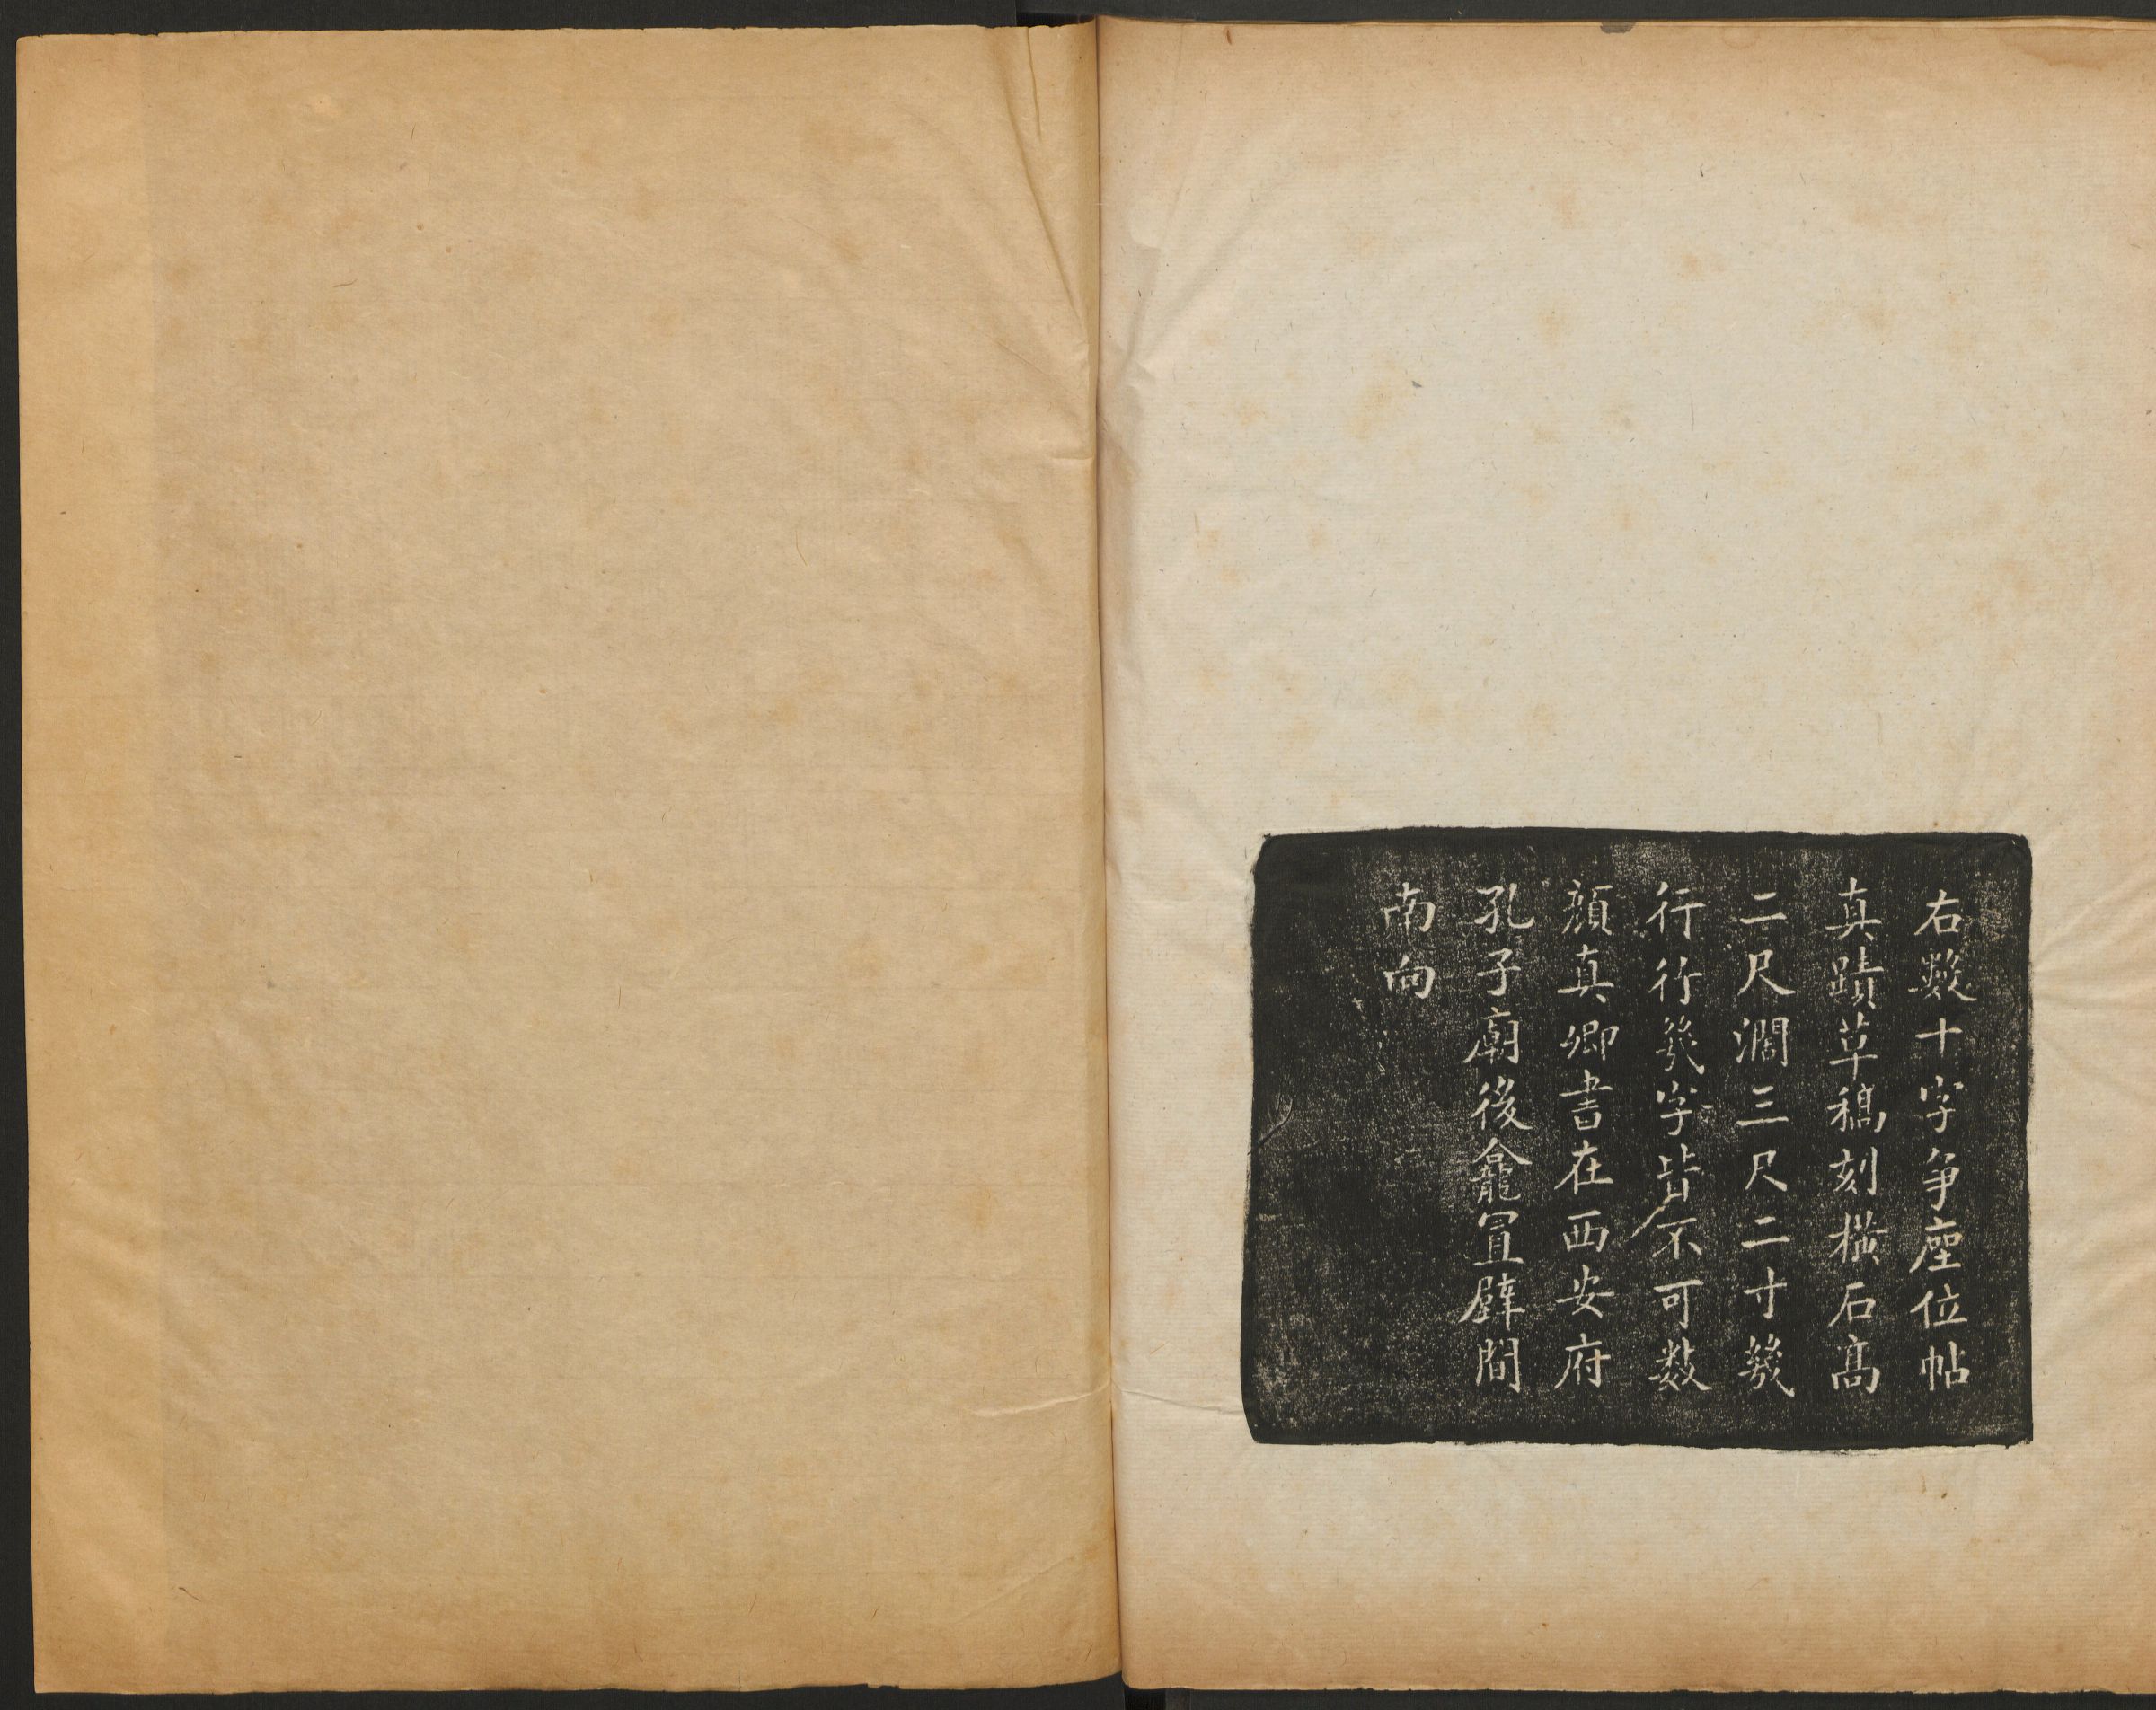 右數十字争座位帖
真蹟草稿刻橫石高
二尺濶三尺二寸幾
行行幾字皆不可数
顏真卿書在西安府
孔子廟後龕置壁間
南向